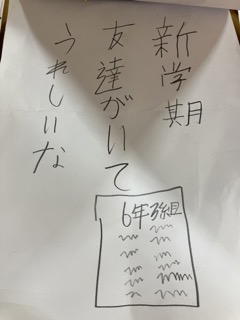 新学期
友達がいて
うれしいな
6年3組